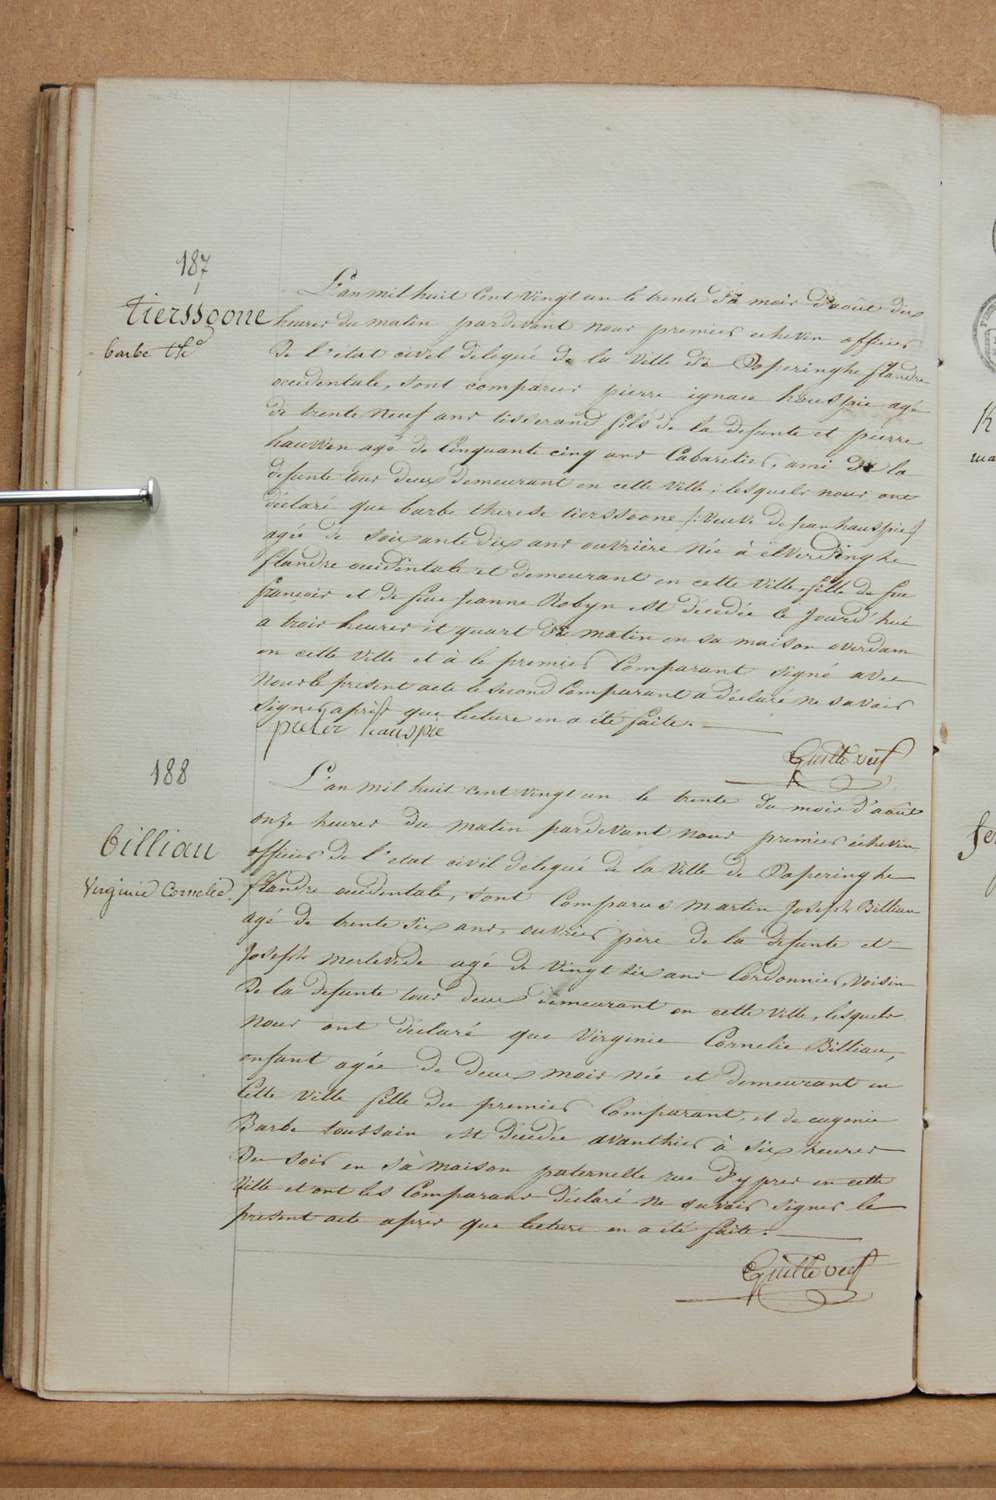 187
tierssoone
barbe thse
L'an mil huit Cent vingt un le trente du mois d'août dix
heures du matin pardevant nous premier echevin officier
De l'etat civil delegué de la ville de Poperinghe flandre
occidentale, sont comparus pierre ignace hauspie agé
de trente neuf ans tisserand fils de la defunte et pierre
hauwen agé de Cinquante cinq ans Cabaretier, ami de la
defunte tous deux demeurant en cette ville, lesquels nous ont
déclaré que barbe therese tierssoone /: veuve de jean hauspie /
agée de soixante dix ans ouvrière née à elverdinghe
flandre occidentale et demeurant en cette ville, fille de feu
françois et de feue jeanne Robyn est décedée le jourd'hui
a trois heures et quart du matin en sa maison overdam
en cette ville et à le premier Comparant signé avec
Nous le present acte le second Comparant a déclaré ne savoir
signer après que lecture en a été faite.
pieter hauspie
188
billiau
Virginie Cornelie
L'an mil huit cent vingt un le trente du mois d'août
onze heures du matin pardevant nous premier échevin
officier de l'etat civil delegué de la ville de Poperinghe
flandre occidentale, sont Comparus Martin Joseph Billiau
agé de trente six ans, ouvrier père de la defunte et
Joseph Merlevede agé de vingt six ans Cordonnier, voisin
De la defunte tous deux demeurant en cette ville, lesquels
Nous ont déclaré que Virginie Cornelie Billiau,
enfant agée de deux mois née et demeurant en
Cette ville fille du premier Comparant, et de eugenie
Barbe toussain est décedée avanthier à six heures
Du soir en sà maison paternelle rue d'ypres en cette
Ville et ont les Comparans déclaré ne savoir signer le
present acte après que lecture en a été faite.